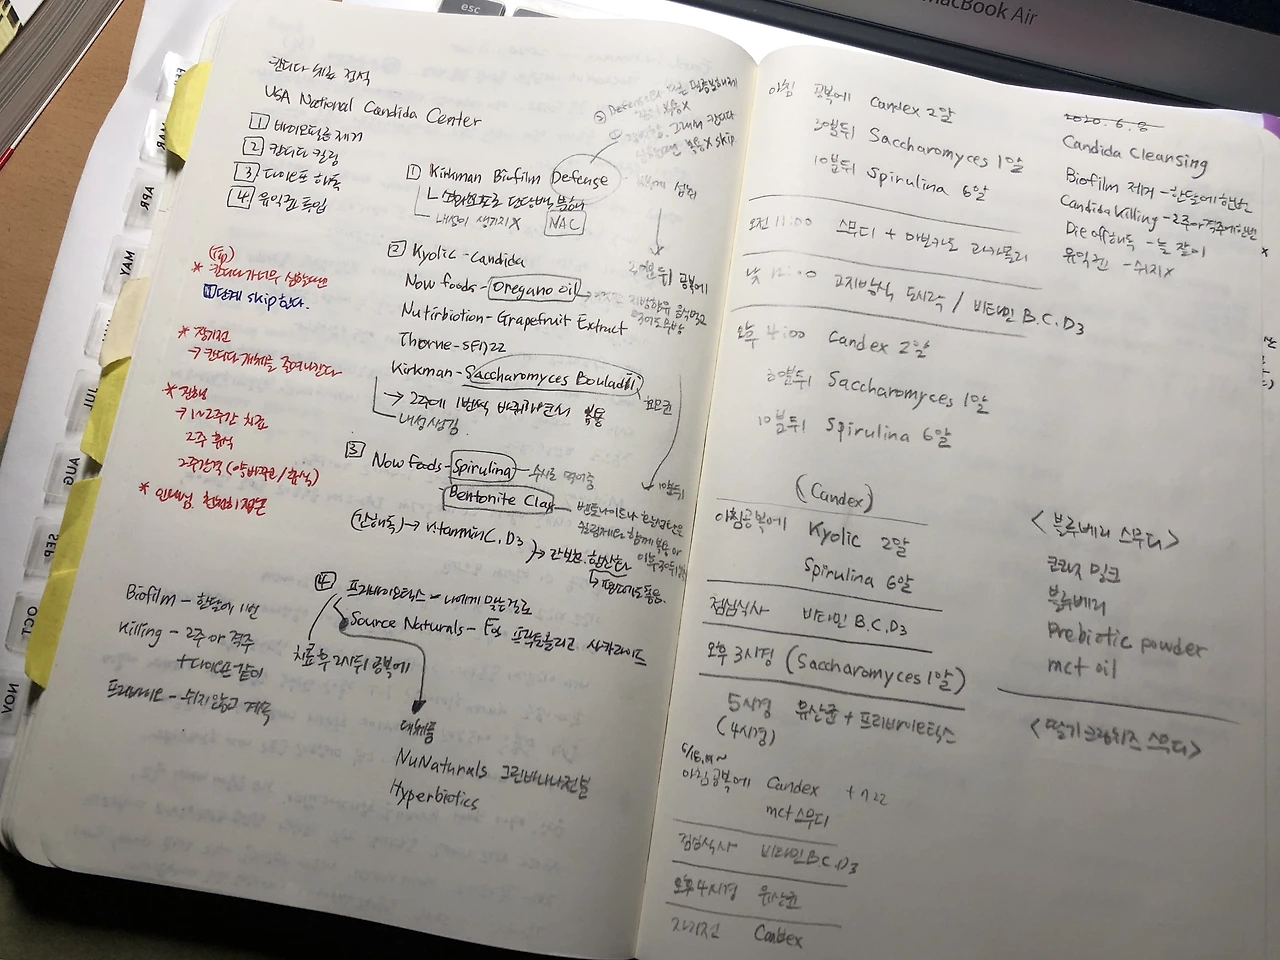 esc
MacBook Air
APR
MAY
JUL
AUG
SEP
OCT
NOV
칸디다 뉴놈 접석
USA National Candida Center
1 바이오필름 제거
2 칸디다 킬링
3 다이오프 해독
4 유익균 투입
1 Kirkman Biofilm Defense
내성이 생기지 X NAC
2 Kyolic - Candida
Now foods - Oregano oil
Nutirbiotion - Grapefruit Extract
Thorne - SF722
Kirkman - Saccharomyces Bouladii 효모균
→ 2주에 1번씩 바꿔가면서 복용
내성생김
3 Now foods - Spirulina 수시로 먹어줌
Bentonite Clay
(간해독) → vitammin C, D3
4 프리바이오틱스 - 나에게 맞는걸로
Source Naturals - Fos 프락토올리고 사카라이드
치료 후 2시뒤 공복에
대체품
NuNaturals 그린바나나전분
Hyperbiotics
* 칸디다가 너무 심할때만
1 단계 skip한다.
* 장기전
→ 칸디다 개체를 줄여나간다
* 진행
→ 1~2주간 치료
2주 휴식
2주간격 (약바꾸고/휴식)
* 인내심, 천천히
Biofilm - 한달에 1번
Killing - 2주 or 격주
+ 다이오프 같이
프리바이오 - 쉬지않고 계속
아침 공복에 Candex 2알
30분뒤 Saccharomyces 1알
10분뒤 Spirulina 6알
오전 11:00 스무디 + 아보카도 과카몰리
낮 12:00 고지방식 도시락 / 비타민 B.C.D3
오후 4:00 Candex 2알
30분뒤 Saccharomyces 1알
10분뒤 Spirulina 6알
(Candex)
아침공복에 Kyolic 2알
Spirulina 6알
점심식사 비타민 B.C.D3
오후 3시경 (Saccharomyces 1알)
5시경 유산균 + 프리바이오틱스
(4시경)
아침공복에 Candex + 722
mct 스무디
점심식사 비타민 B.C.D3
오후 4시경 유산균
자기전 Candex
2020.6.8
Candida Cleansing
Biofilm 제거 - 한달에 한번
Candida Killing - 2주 or 격주에 한번
Die off 해독 - 늘 같이
유익균 - 쉬지 X
<블루베리 스무디>
코코넛 밀크
블루베리
Prebiotic powder
mct oil
<딸기크림치즈 스무디>